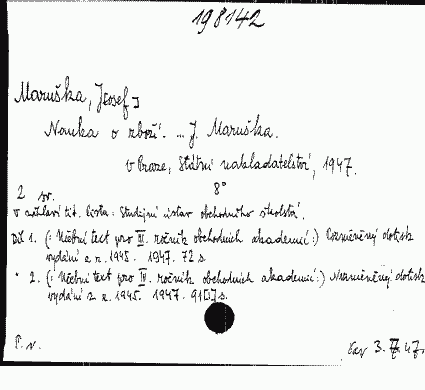 198142
Maruška, J[osef]
Nauka o zboží. ... J. Maruška.
V Praze, Státní nakladatelství, 1947.
2 sv. 8°
V záhlaví tit. listu: Studijní ústav obchodního školství.
Díl 1. (: Učební text pro III. ročník obchodních akademií :) Nezměněný dotisk
vydání z r. 1945. 1947. 72 s.
" 2. (: Učební text pro IV. ročník obchodních akademií :) Nezměněný dotisk
vydání z r. 1945. 1947. 91[1] s.
P. v.
3. 47.